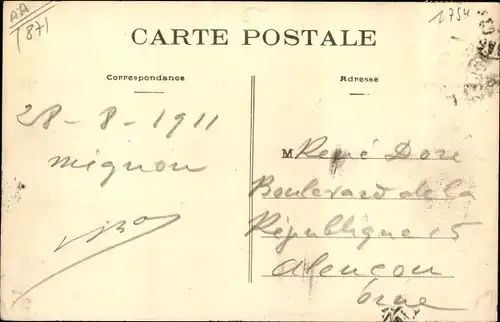 AA
(871
1754
CARTE POSTALE
Correspondance
Adresse
28 - 8 - 1911
mignon
M René Doré
Boulevard de la
République 15
Alençon
Orne